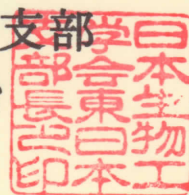 支部
日本生物工
学会東日本
支部長之印